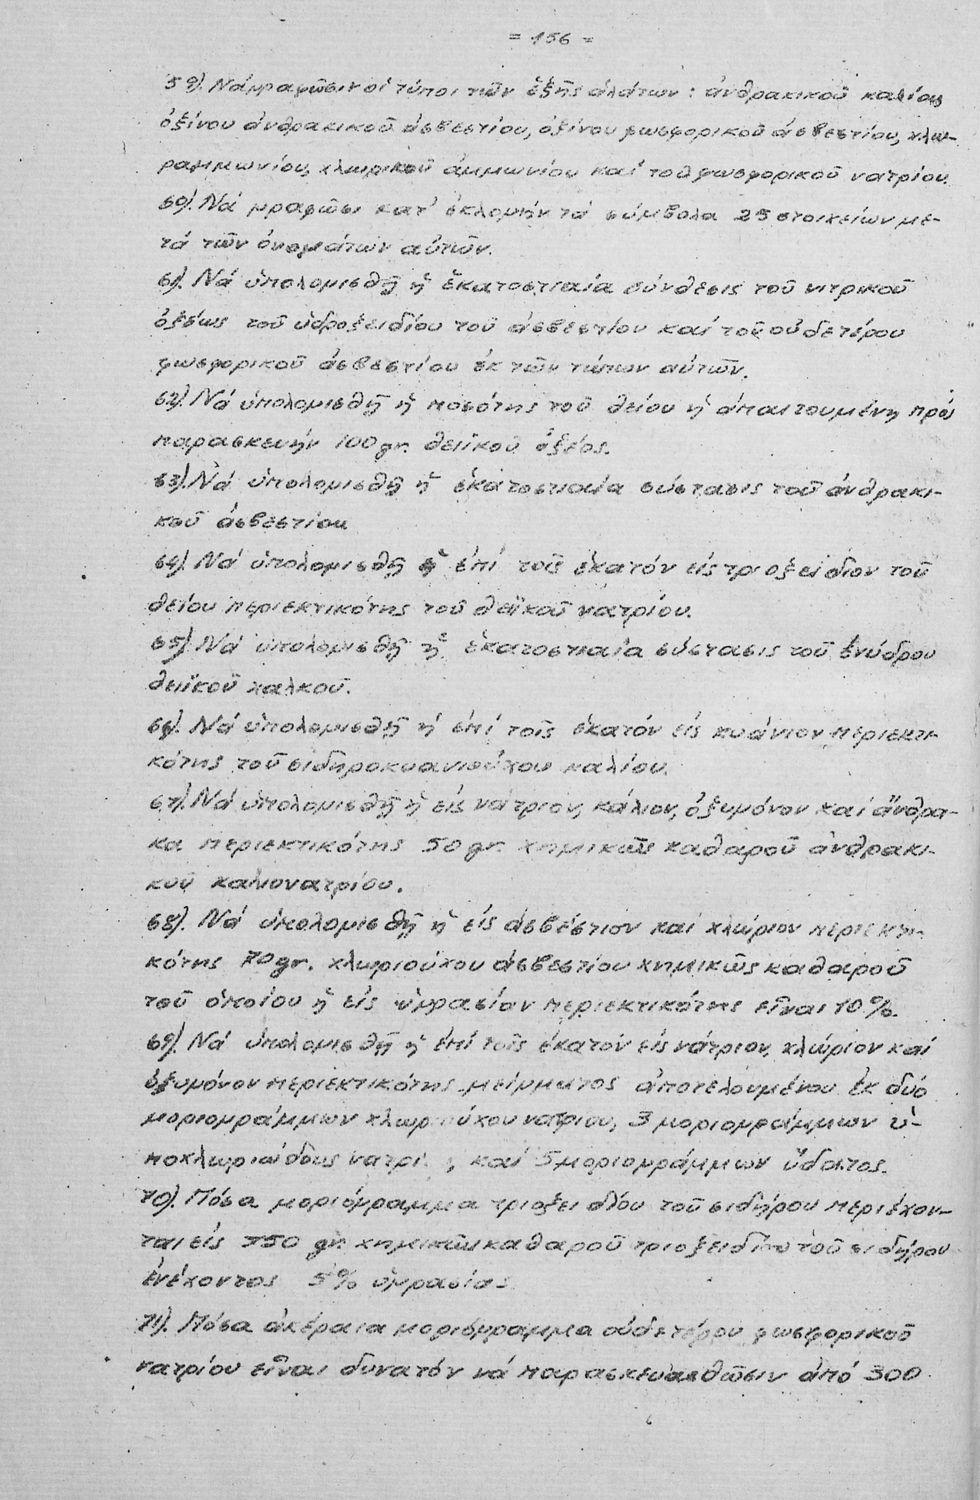 = 156 =
59). Νά γραφῶσιν οἱ τύποι τῶν ἑξῆς ἁλάτων: ἀνθρακικοῦ καλίου,
ὀξίνου ἀνθρακικοῦ ἀσβεστίου, ὀξίνου φωσφορικοῦ ἀσβεστίου, χλω-
ραμμωνίου, χλωρικοῦ ἀμμωνίου καί τοῦ φωσφορικοῦ νατρίου.
60). Νά γραφῶσι κατ' ἐκλογήν τά σύμβολα 25 στοιχείων με-
τά τῶν ὀνομάτων αὐτῶν.
61). Νά ὑπολογισθῇ ἡ ἑκατοστιαία σύνθεσις τοῦ νιτρικοῦ
ὀξέως τοῦ ὑδροξειδίου τοῦ ἀσβεστίου καί τοῦ οὐδετέρου
φωσφορικοῦ ἀσβεστίου ἐκ τῶν τύπων αὐτῶν.
62). Νά ὑπολογισθῇ ἡ ποσότης τοῦ θείου ἡ ἀπαιτουμένη πρός
παρασκευήν 100 gr. θειϊκοῦ ὀξέος.
63). Νά ὑπολογισθῇ ἡ ἑκατοστιαία σύστασις τοῦ ἀνθρακι-
κοῦ ἀσβεστίου
64). Νά ὑπολογισθῇ ἡ ἐπί τοῖς ἑκατόν εἰς τριοξείδιον τοῦ
θείου περιεκτικότης τοῦ θειϊκοῦ νατρίου.
65). Νά ὑπολογισθῇ ἡ ἑκατοστιαία σύστασις τοῦ ἐνύδρου
θειϊκοῦ χαλκοῦ.
66). Νά ὑπολογισθῇ ἡ ἐπί τοῖς ἑκατόν εἰς κυάνιον περιεκτι-
κότης τοῦ σιδηροκυανιούχου καλίου.
67). Νά ὑπολογισθῇ ἡ εἰς νάτριον, κάλιον, ὀξυγόνον καί ἄνθρα-
κα περιεκτικότης 50 gr. χημικῶς καθαροῦ ἀνθρακι-
κοῦ καλιονατρίου.
68). Νά ὑπολογισθῇ ἡ εἰς ἀσβέστιον καί χλώριον περιεκτι-
κότης 70 gr. χλωριούχου ἀσβεστίου χημικῶς καθαροῦ
τοῦ ὁποίου ἡ εἰς ὑγρασίαν περιεκτικότης εἶναι 10%.
69). Νά ὑπολογισθῇ ἡ ἐπί τοῖς ἑκατόν εἰς νάτριον, χλώριον καί
ὀξυγόνον περιεκτικότης μείγματος ἀποτελουμένου ἐκ δύο
μοριογράμμων χλωριούχου νατρίου, 3 μοριογράμμων ὑ-
ποχλωριώδους νατρί , καί 5 μοριογράμμων ὕδατος.
70). Πόσα μοριόγραμμα τριοξειδίου τοῦ σιδήρου περιέχον-
ται εἰς 750 gr. χημικῶς καθαροῦ τριοξειδίου τοῦ σιδήρου
ἐνέχοντος 5% ὑγρασίας.
71). Πόσα ἀκέραια μοριόγραμμα οὐδετέρου φωσφορικοῦ
νατρίου εἶναι δυνατόν νά παρασκευασθῶσιν ἀπό 300